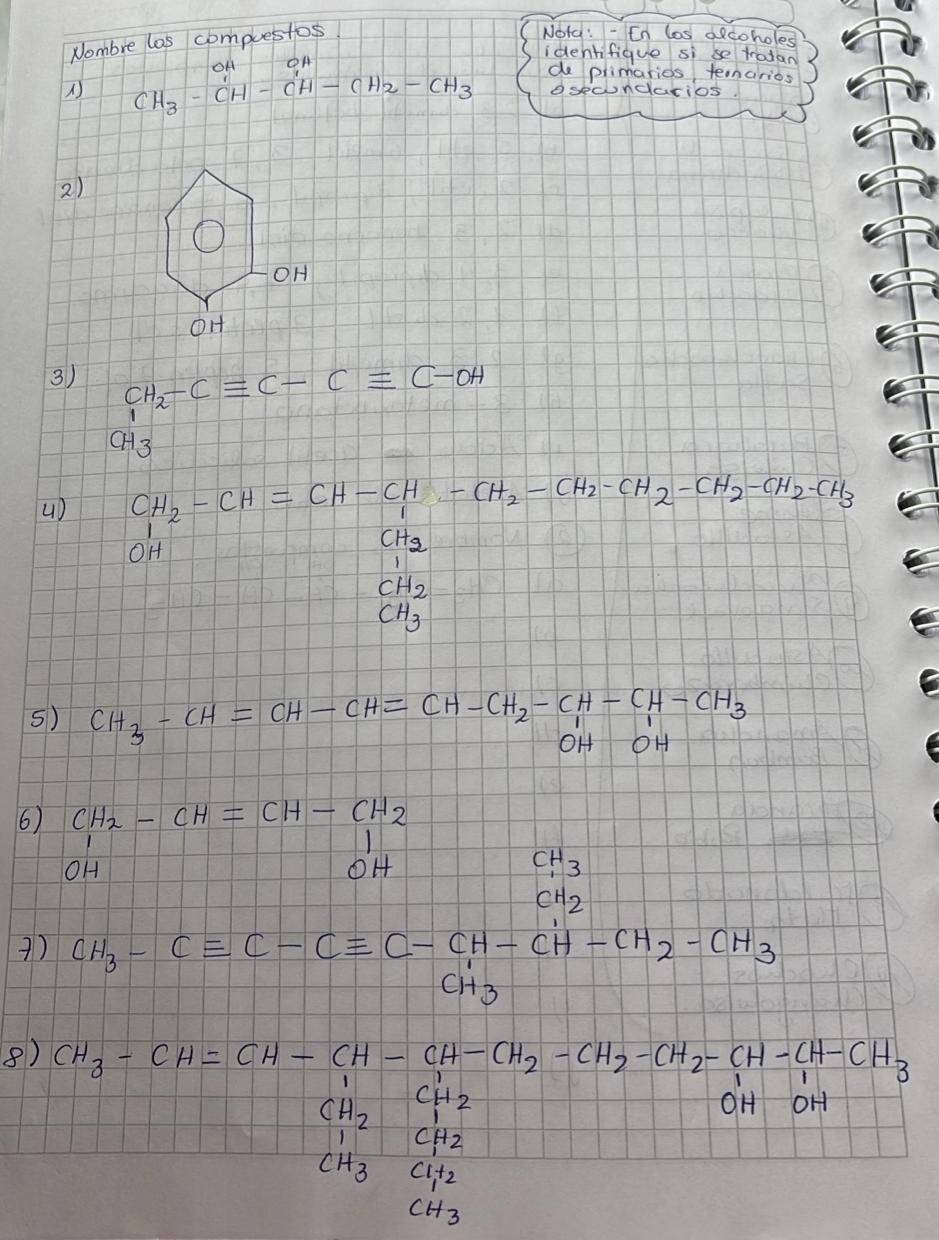 Nombre los compuestos.
Nota: - En los alcoholes
identifique si se tratan
de primarios, ternarios
o secundarios.
OH OH
1) CH3 - CH - CH - CH2 - CH3
2)
OH
OH
3) CH2 - C ≡ C - C ≡ C - OH
CH3
4) CH2 - CH = CH - CH - CH2 - CH2 - CH2 - CH2 - CH2 - CH3
OH CH2
CH2
CH3
5) CH3 - CH = CH - CH = CH - CH2 - CH - CH - CH3
OH OH
6) CH2 - CH = CH - CH2
OH OH
CH3
CH2
7) CH3 - C ≡ C - C ≡ C - CH - CH - CH2 - CH3
CH3
8) CH3 - CH = CH - CH - CH - CH2 - CH2 - CH2 - CH - CH - CH3
CH2 CH2 OH OH
CH3 CH2
CH2
CH3